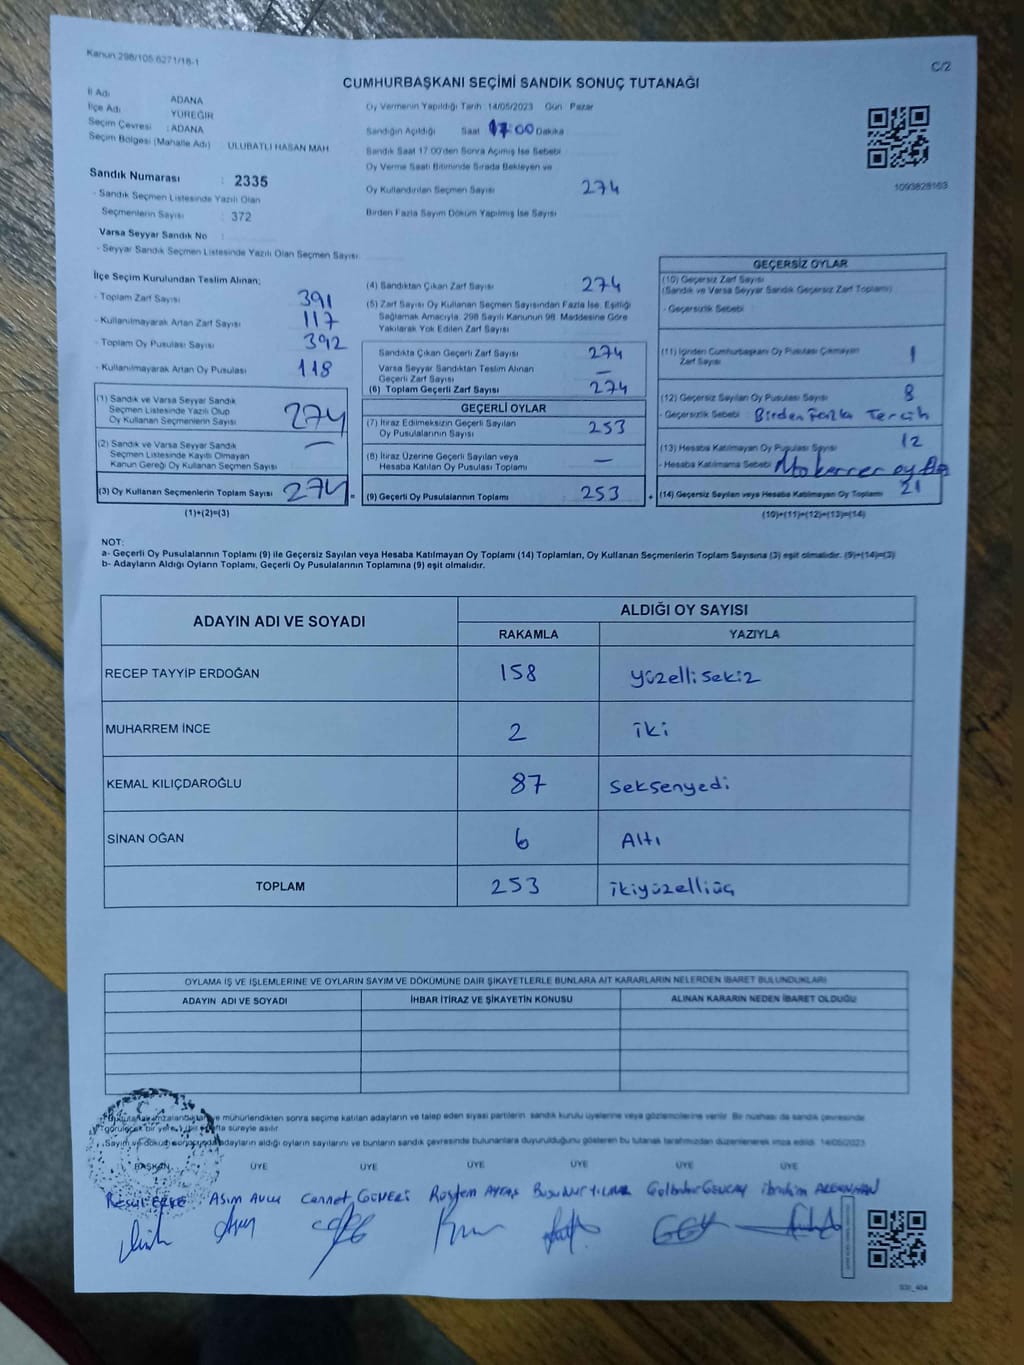 Kanun:298/105 6271/18-1
C/2
CUMHURBAŞKANI SEÇİMİ SANDIK SONUÇ TUTANAĞI
İl Adı ADANA
İlçe Adı YÜREĞİR
Seçim Çevresi : ADANA
Seçim Bölgesi (Mahalle Adı) ULUBATLI HASAN MAH
Sandık Numarası : 2335
- Sandık Seçmen Listesinde Yazılı Olan
Seçmenlerin Sayısı : 372
Varsa Seyyar Sandık No :
- Seyyar Sandık Seçmen Listesinde Yazılı Olan Seçmen Sayısı
Oy Vermenin Yapıldığı Tarih :14/05/2023 Gün : Pazar
Sandığın Açıldığı Saat 17:00 Dakika
Sandık Saat 17:00'den Sonra Açılmış İse Sebebi
Oy Verme Saati Bitiminde Sırada Bekleyen ve
Oy Kullandırılan Seçmen Sayısı 274
Birden Fazla Sayım Döküm Yapılmış İse Sayısı
1093828163
İlçe Seçim Kurulundan Teslim Alınan:
- Toplam Zarf Sayısı 391
- Kullanılmayarak Artan Zarf Sayısı 117
- Toplam Oy Pusulası Sayısı 392
- Kullanılmayarak Artan Oy Pusulası 118
(1) Sandık ve Varsa Seyyar Sandık
Seçmen Listesinde Yazılı Olup
Oy Kullanan Seçmenlerin Sayısı 274
(2) Sandık ve Varsa Seyyar Sandık
Seçmen Listesinde Kayıtlı Olmayan
Kanun Gereği Oy Kullanan Seçmen Sayısı —
(3) Oy Kullanan Seçmenlerin Toplam Sayısı 274 =
(1)+(2)=(3)
(4) Sandıktan Çıkan Zarf Sayısı 274
(5) Zarf Sayısı Oy Kullanan Seçmen Sayısından Fazla İse, Eşitliği
Sağlamak Amacıyla, 298 Sayılı Kanunun 98. Maddesine Göre
Yakılarak Yok Edilen Zarf Sayısı
Sandıkta Çıkan Geçerli Zarf Sayısı 274
Varsa Seyyar Sandıktan Teslim Alınan
Geçerli Zarf Sayısı —
(6) Toplam Geçerli Zarf Sayısı 274
GEÇERLİ OYLAR
(7) İtiraz Edilmeksizin Geçerli Sayılan
Oy Pusulalarının Sayısı 253
(8) İtiraz Üzerine Geçerli Sayılan veya
Hesaba Katılan Oy Pusulası Toplamı —
(9) Geçerli Oy Pusulalarının Toplamı 253 +
GEÇERSİZ OYLAR
(10) Geçersiz Zarf Sayısı
(Sandık ve Varsa Seyyar Sandık Geçersiz Zarf Toplamı)
- Geçersizlik Sebebi
(11) İçinden Cumhurbaşkanı Oy Pusulası Çıkmayan
Zarf Sayısı 1
(12) Geçersiz Sayılan Oy Pusulası Sayısı 8
- Geçersizlik Sebebi Birden Fazla Tercih
(13) Hesaba Katılmayan Oy Pusulası Sayısı 12
- Hesaba Katılmama Sebebi
(14) Geçersiz Sayılan veya Hesaba Katılmayan Oy Toplamı 21
(10)+(11)+(12)+(13)=(14)
NOT:
a- Geçerli Oy Pusulalarının Toplamı (9) ile Geçersiz Sayılan veya Hesaba Katılmayan Oy Toplamı (14) Toplamları, Oy Kullanan Seçmenlerin Toplam Sayısına (3) eşit olmalıdır. (9)+(14)=(3)
b- Adayların Aldığı Oyların Toplamı, Geçerli Oy Pusulalarının Toplamına (9) eşit olmalıdır.
ADAYIN ADI VE SOYADI ALDIĞI OY SAYISI
RAKAMLA YAZIYLA
RECEP TAYYİP ERDOĞAN 158 yüzellisekiz
MUHARREM İNCE 2 iki
KEMAL KILIÇDAROĞLU 87 Seksenyedi
SİNAN OĞAN 6 Altı
TOPLAM 253 ikiyüzelliüç
OYLAMA İŞ VE İŞLEMLERİNE VE OYLARIN SAYIM VE DÖKÜMÜNE DAİR ŞİKAYETLERLE BUNLARA AİT KARARLARIN NELERDEN İBARET BULUNDUKLARI
ADAYIN ADI VE SOYADI İHBAR İTİRAZ VE ŞİKAYETİN KONUSU ALINAN KARARIN NEDEN İBARET OLDUĞU
mühürlendikten sonra seçime katılan adayların ve talep eden siyasi partilerin sandık kurulu üyelerine veya gözlemcilerine verilir. Bir nüshası da sandık çevresinde
süreyle asılır
adayların aldığı oyların sayılarını ve bunların sandık çevresinde bulunanlara duyurulduğunu gösteren bu tutanak tarafımızdan düzenlenerek imza edildi. 14/05/2023
BAŞKAN ÜYE ÜYE ÜYE ÜYE ÜYE ÜYE
Asım Cennet Rüstem İbrahim